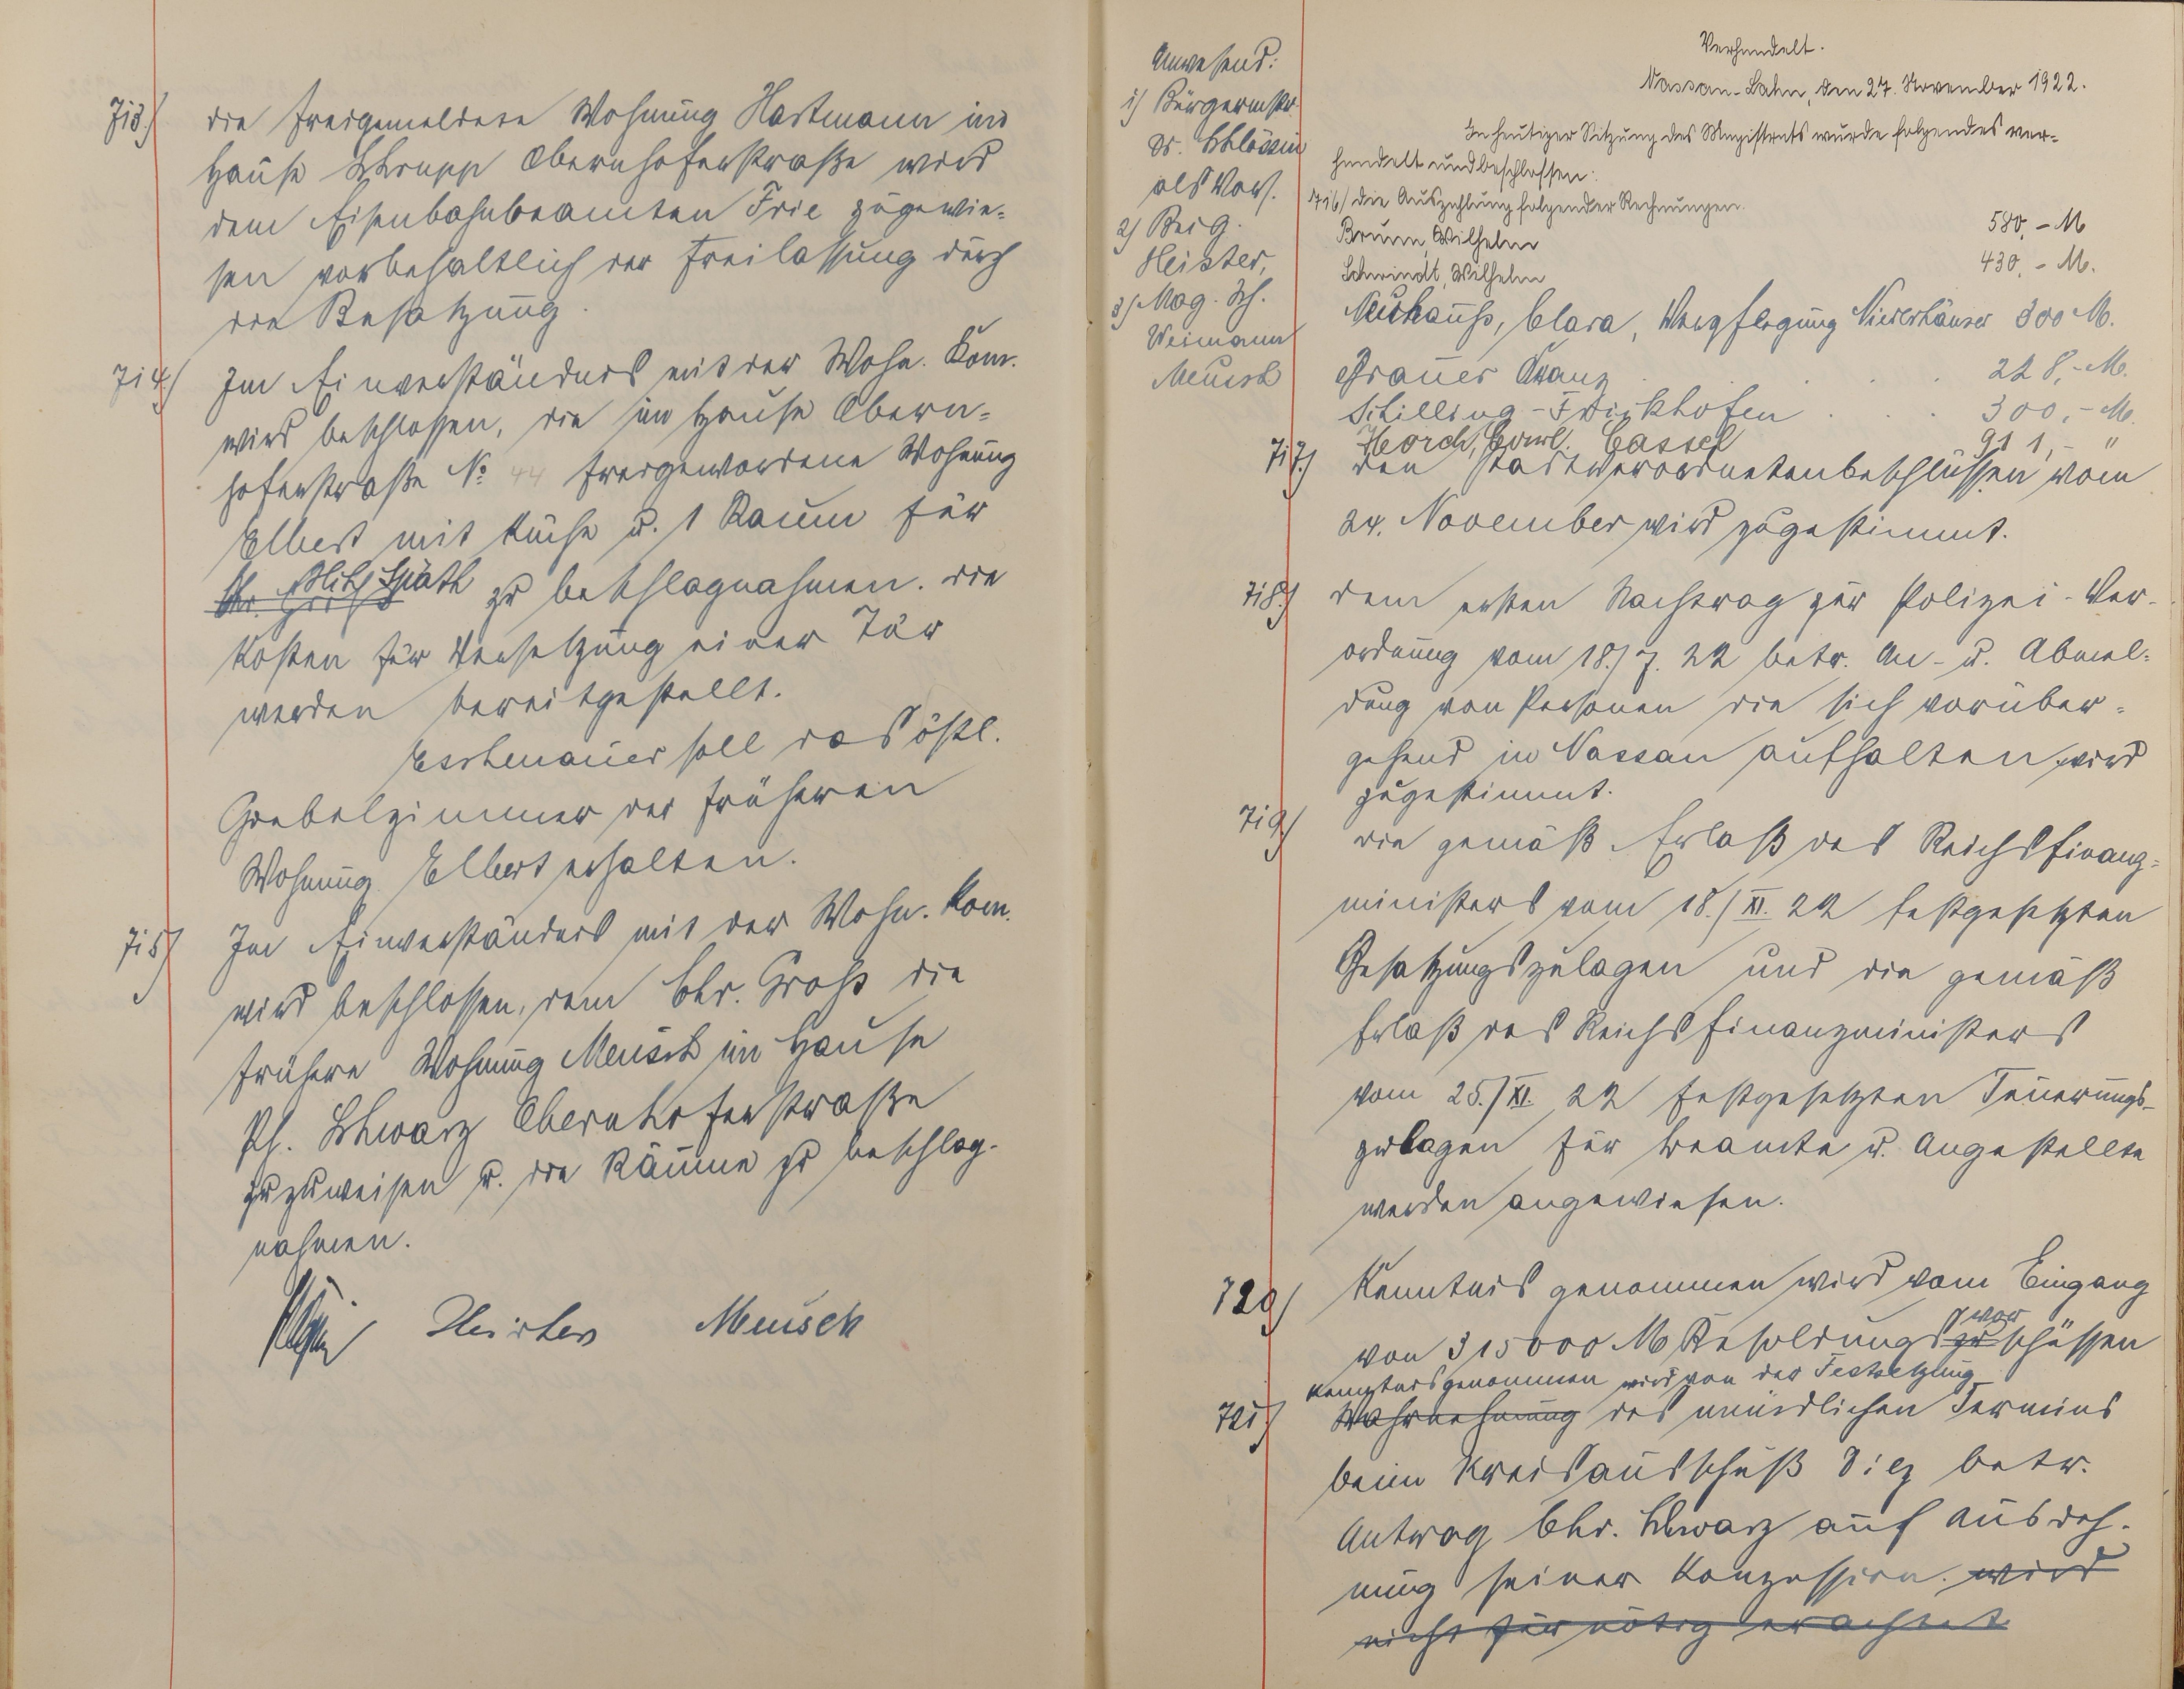 713.) die freigemeldete Wohnung Hartmann im
Hause Schrupp Obernhoferstraße wird
dem Eisenbahnbeamten Frie zugewie=
sen vorbehaltlich der Freilassung durch
die Besatzung.
714.) Im Einverständnis mit der Wohn. Kom.
wird beschlossen, die im Hause Obern=
hoferstraße No 44 freigewordene Wohnung
Elbert mit Küche u. 1 Raum für
Chr. Groß Späth zu beschlagnahmen. Die
Kosten für Versetzung einer Tür
werden bereitgestellt.
Eschenauer soll das östl.
Giebelzimmer der früheren
Wohnung Elbert erhalten.
715) Im Einverständnis mit der Wohn. Kom.
wird beschlossen, dem Chr. Groß die
frühere Wohnung Meusch im Hause
Ph. Schwarz Obernhoferstraße
zuzuweisen u. die Räume zu beschlag-
nahmen.
Heister Meusch
Anwesend:
1) Bürgermstr.
Dr. Schlössin
als Vors.
2) Beig.
Heister,
3) Mag. Sch.
Weimann
Meusch
Verhandelt.
Nassau-Lahn, den 27. November 1922.
In heutiger Sitzung des Magistrats wurde folgendes ver-
handelt und beschlossen:
716) Die Auszahlung folgender Rechnungen.
Brum, Wilhelm 580,- M
Schwindt, Wilhelm 430,- M.
Neuhauß, Clara, Verpflegung Niederhäuser 300 M.
Brauer Kranz . . . 228,- M.
Schilling-Frickhofen . . . 300,- M.
Horch, Carl. Cassel 911,- "
717.) Den Stadtverordnetenbeschlüssen vom
24. November wird zugestimmt.
718.) Dem ersten Nachtrag zur Polizei-Ver-
ordnung vom 18./7. 22 betr. An- u. Abmel=
dung von Personen die sich vorüber=
gehend in Nassau aufhalten wird
zugestimmt.
719) Die gemäß Erlaß des Reichsfinanz=
ministers vom 18./XI. 22 festgesetzten
Besatzungszulagen und die gemäß
Erlaß des Reichsfinanzministers
vom 25./XI. 22 festgesetzten Teuerungs-
zulagen für Beamte u. Angestellte
werden angewiesen.
720) Kenntnis genommen wird vom Eingang
von 315000 M Besoldungszuvorschüssen
Kenntnis genommen wird von der Festsetzung
721.) Wahrnehmung des mündlichen Termins
beim Kreisausschuß Diez betr.
Antrag Chr. Schwarz auf Ausdeh-
nung seiner Konzession. wird
nicht für nötig erachtet